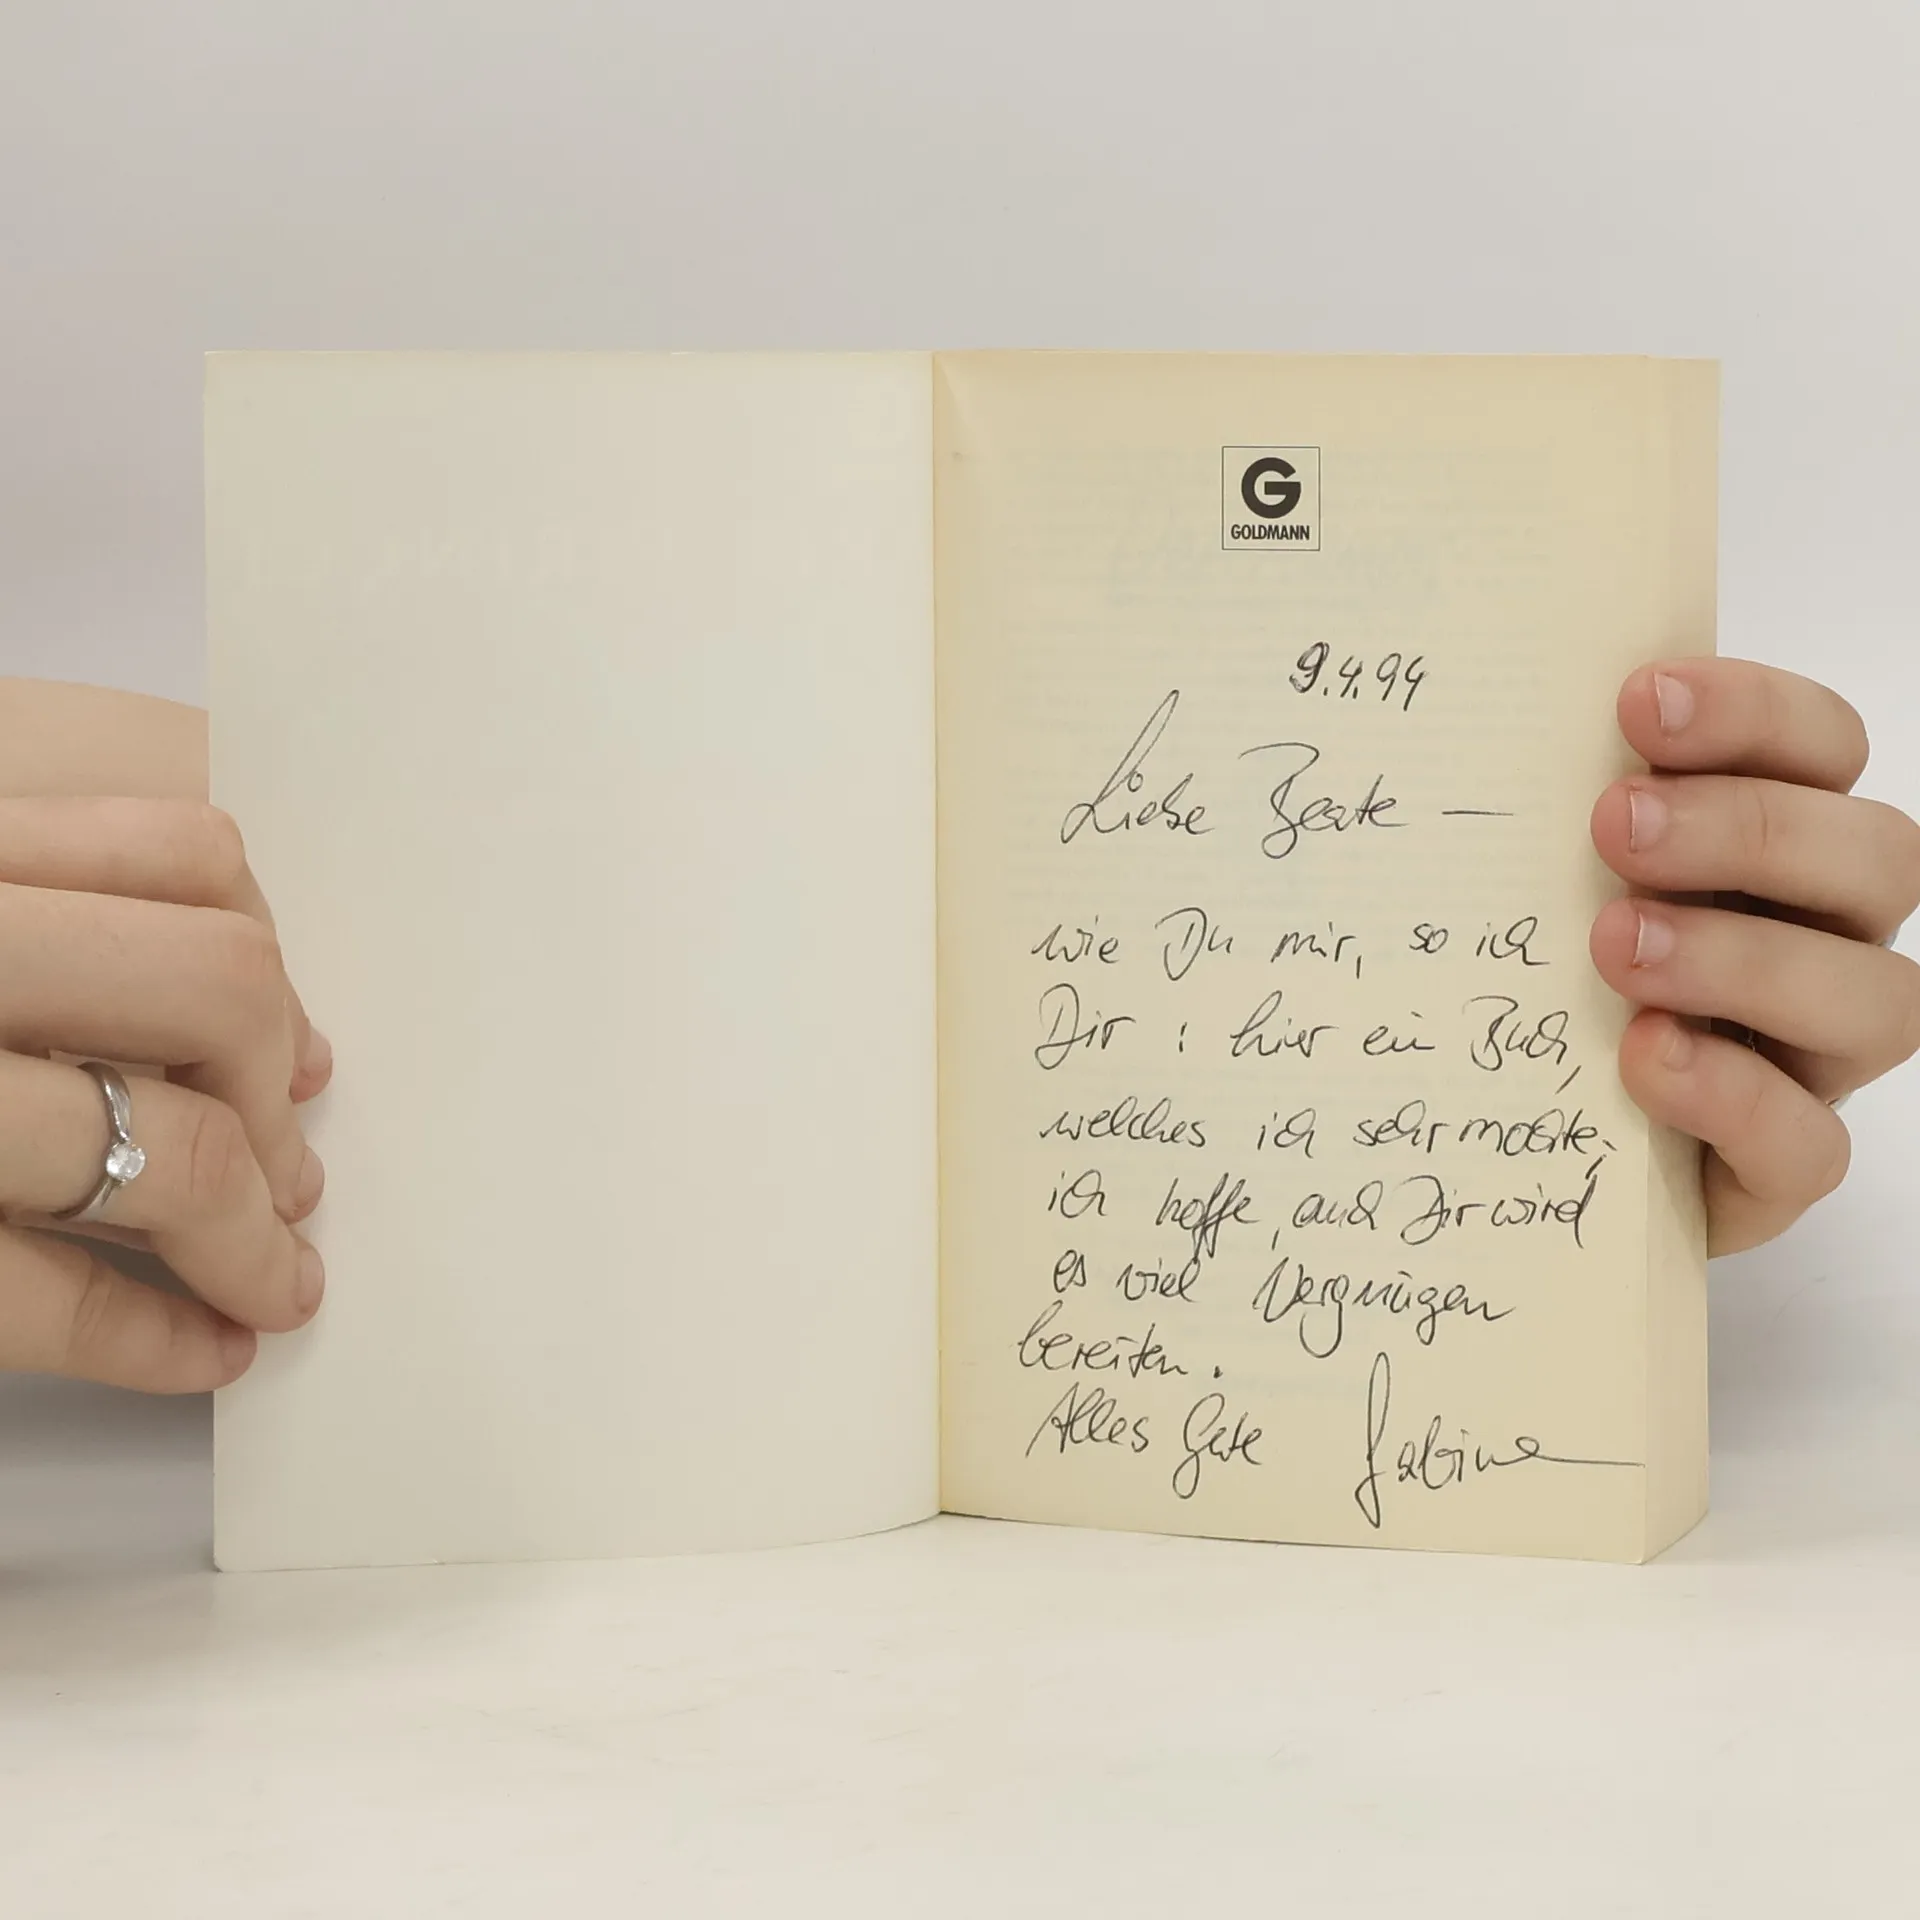 G
GOLDMANN
9.4.94
Liebe Beate —
wie Du mir, so ich
Dir : hier ein Buch,
welches ich sehr mochte;
ich hoffe, auch Dir wird
es viel Vergnügen
bereiten.
Alles Gute Sabine